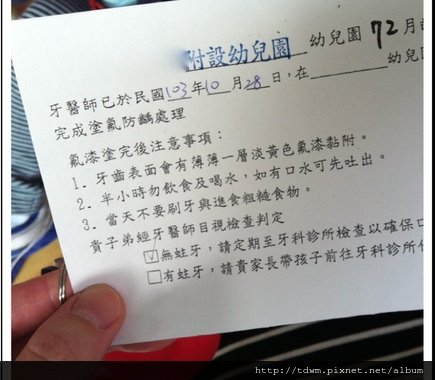 附設幼兒園 幼兒園 72 月
牙醫師已於民國103年10月28日,在 幼兒
完成塗氟防齲處理
氟漆塗完後注意事項:
1. 牙齒表面會有薄薄一層淡黃色氟漆黏附。
2. 半小時勿飲食及喝水,如有口水可先吐出。
3. 當天不要刷牙與進食粗糙食物。
貴子弟經牙醫師目視檢查判定
☑無蛀牙,請定期至牙科診所檢查以確保口
□有蛀牙,請貴家長帶孩子前往牙科診所
http://tdwm.pixnet.net/album